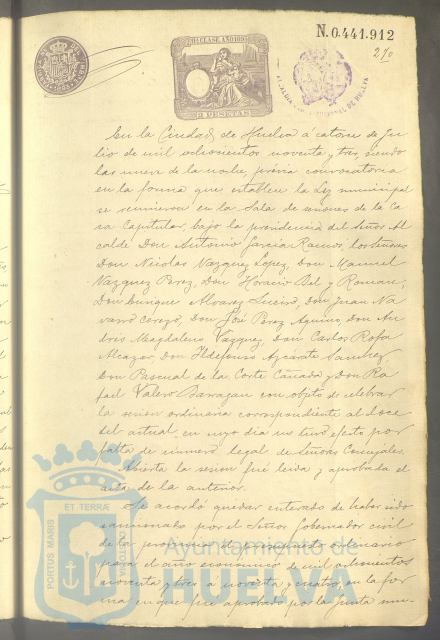 N.0.441.912
11ª CLASE. AÑO 1893
2 PESETAS
En la Ciudad de Huelva á catorce de Ju-
lio de mil ochocientos noventa y tres, siendo
las nueve de la noche, prévia convocatoria
en la forma que establece la Ley municipal
se reunieron en la Sala de sesiones de la Ca
sa Capitular, bajo la presidencia del Señor Al
calde Don Antonio Garcia Ramos, los Señores
Don Nicolas Vazquez Lopez, Don Manuel
Vazquez Perez, Don Horacio Bel y Roman,
Don Enrique Alvarez Sueiro, Don Juan Na
varro Cerezo, Don José Perez Aquino, Don An
drés Magdaleno Vazquez, Don Carlos Rofa
Alcazar, Don Ildefonso Azcárate Sanchez,
Don Pascual de la Corte Cañada y Don Ra
fael Valero Barragan con objeto de celebrar
la sesion ordinaria correspondiente al doce
del actual en cuyo dia no tuvo efecto por
falta de número legal de Señores Concejales.
Abierta la sesion fué leida y aprobada el
acta de la anterior.
Se acordó quedar enterado de haber sido
sancionado por el Señor Gobernador civil
de la provincia el presupuesto ordinario
para el año economico de mil ochocientos
noventa y tres á noventa y cuatro, en la for
ma en que fué aprobado por la Junta mu-
PORTUS MARIS
ET TERRÆ
CUSTODIA
Ayuntamiento de
HUELVA